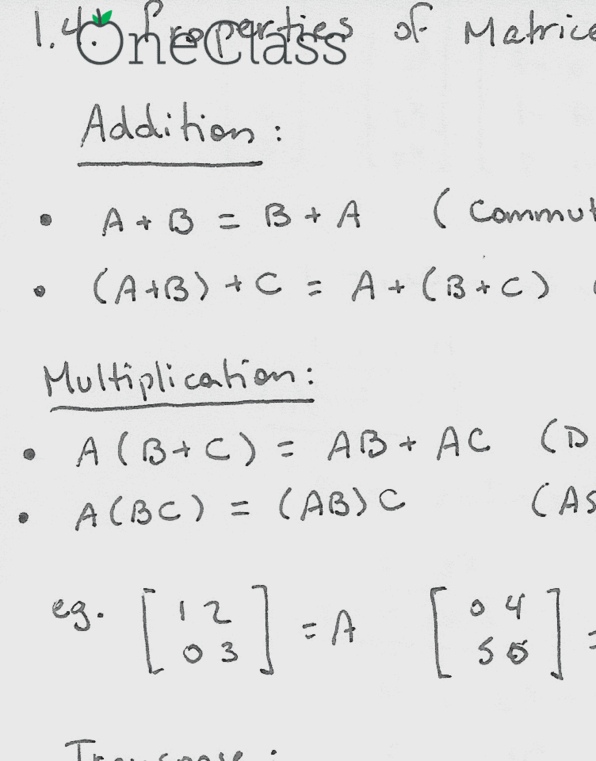 1.4 Properties of Matrice
OneClass
Addition:
• A + B = B + A (Commut
• (A+B) + C = A + (B + C) (
Multiplication:
• A (B + C) = AB + AC (D
• A(BC) = (AB)C (As
eg. [ 1 2 ] = A [ 0 4 ] =
0 3 5
Transpose: